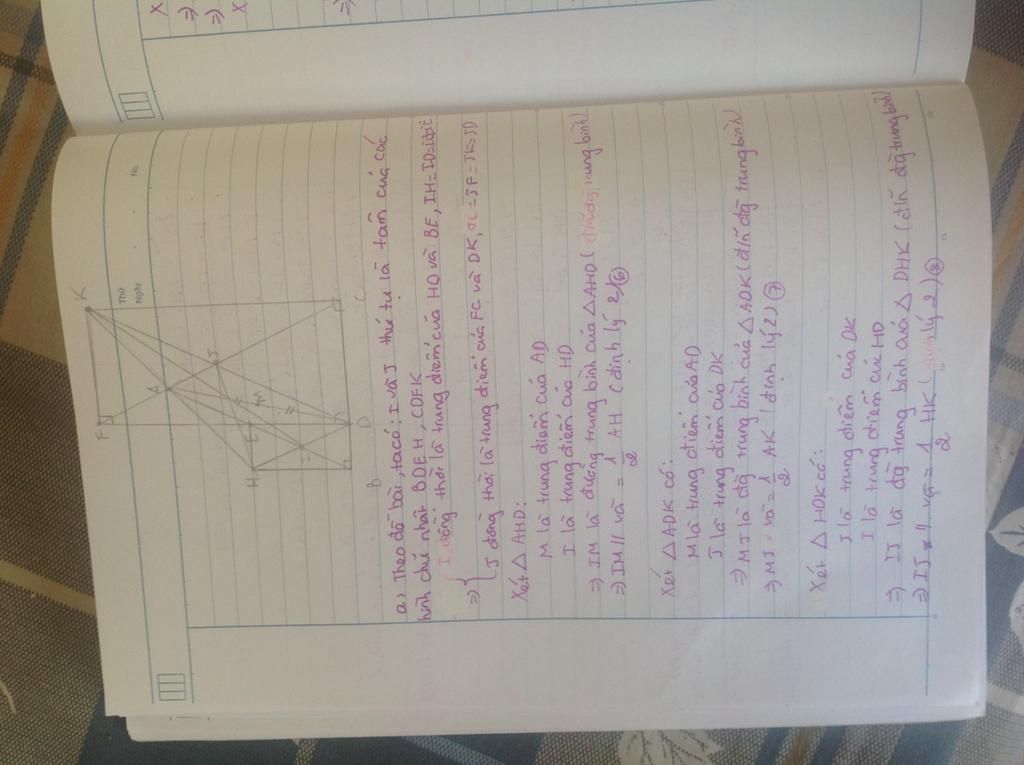 Thứ
Ngày
No.
F
K
A
J
E
M
H
I
B
D
C
a) Theo đề bài, ta có: I và J thứ tự là tâm của các
hình chữ nhật BDEH, CDFK
=> I đồng thời là trung điểm của HD và BE, IH=ID=IB=IE
J đồng thời là trung điểm của FC và DK, JC=JF=JK=JD
Xét △ AHD:
M là trung điểm của AD
I là trung điểm của HD
=> IM là đường trung bình của △AHD (đ/n đg trung bình)
=> IM // và = 1/2 AH (định lý 2) ⑥
Xét △ADK có:
M là trung điểm của AD
J là trung điểm của DK
=> MJ là đg trung bình của △ADK (đ/n đg trung bình)
=> MJ // và = 1/2 AK (định lý 2) ⑦
Xét △ HDK có:
J là trung điểm của DK
I là trung điểm của HD
=> IJ là đg trung bình của △ DHK (đ/n đg trung bình)
=> IJ // và = 1/2 HK (định lý 2) ⑧
X
=>
=>
X
=>